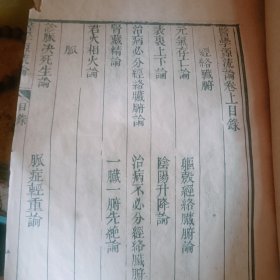 醫學源流論卷上目録
經絡臟腑
元氣存亡論
軀殼經絡臟腑論
表裏上下論
陰陽升降論
治病必分經絡臟腑論
治病不必分經絡臟腑
腎藏精論
一臟一腑先絶論
君火相火論
脈
診脈決死生論
脈症輕重論
目錄